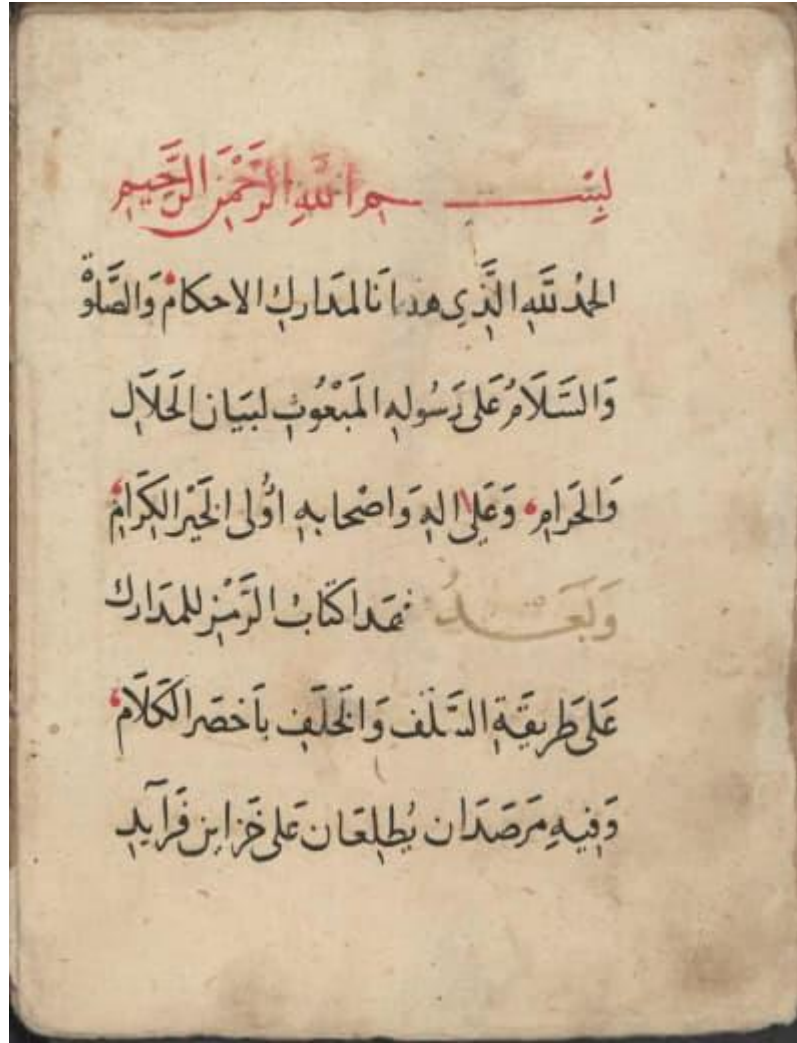 بِسْــــــمِ اللّٰهِ الرَّحْمٰنِ الرَّحِيمِ
الحمدُ للّهِ الَّذِي هدانَا لمَداركِ الاحكام وَالصَّلوٰة
وَالسَّلَامُ عَلى رَسُولِهِ المَبْعُوثِ لبيَان الحَلَال
وَالحَرامِ وَعَلى الِهِ وَاصْحابِهِ اُولى الخَيْرِ الكِرَامِ
وَبَعْــــدُ فهَذا كتَابُ الرَّمْزِ للمدَارك
عَلى طَريقَةِ السَّلَف وَالخَلَفِ بأخصَر الكَلَام
وَفِيهِ مَرصَدَان يُطلِعَان عَلى خَزاينِ فَرآيدِ